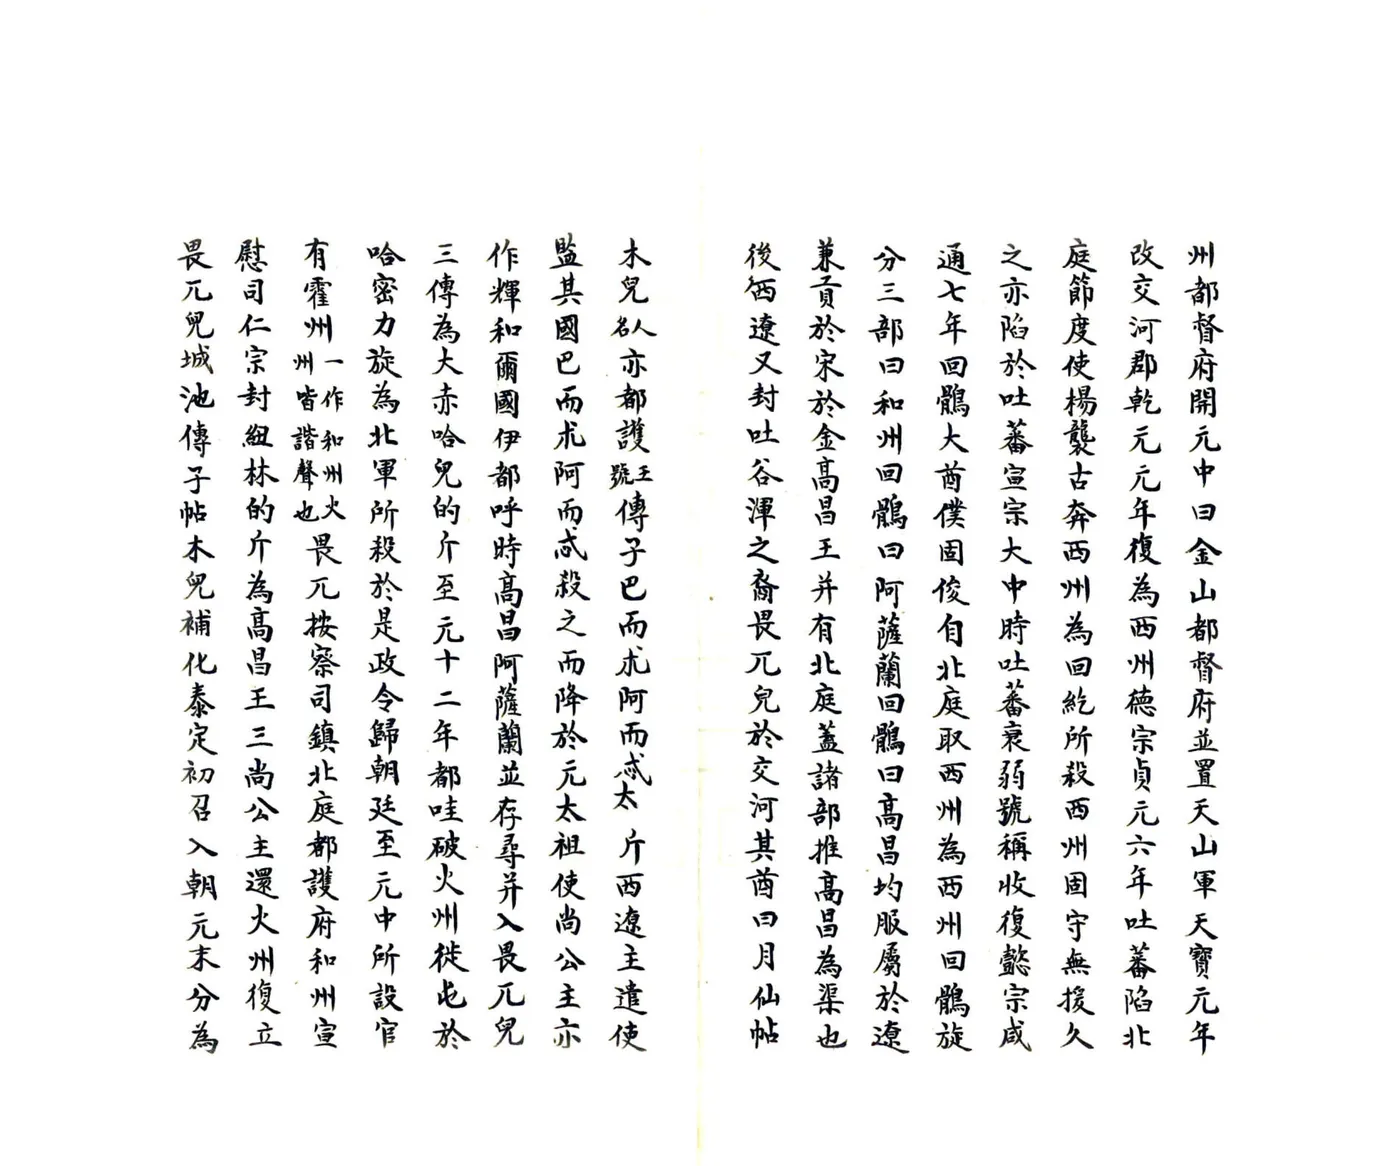 州都督府開元中曰金山都督府並置天山軍天寶元年
改交河郡乾元元年復為西州德宗貞元六年吐蕃陷北
庭節度使楊襲古奔西州為回紇所殺西州固守無援久
之亦陷於吐蕃宣宗大中時吐蕃衰弱號稱收復懿宗咸
通七年回鶻大酋僕固俊自北庭取西州為西州回鶻旋
分三部曰和州回鶻曰阿薩蘭回鶻曰高昌均服屬於遼
兼貢於宋於金高昌王并有北庭蓋諸部推高昌為渠也
後西遼又封吐谷渾之裔畏兀兒於交河其酋曰月仙帖
木兒人名亦都護王號傳子巴而朮阿而忒太斤西遼主遣使
監其國巴而朮阿而忒殺之而降於元太祖使尚公主亦
作輝和爾國伊都呼時高昌阿薩蘭並存尋并入畏兀兒
三傳為大赤哈兒的斤至元十二年都哇破火州徙屯於
哈密力旋為北軍所殺於是政令歸朝廷至元中所設官
有霍州一作和州火州皆諧聲也畏兀按察司鎮北庭都護府和州宣
慰司仁宗封紐林的斤為高昌王三尚公主還火州復立
畏兀兒城池傳子帖木兒補化泰定初召入朝元末分為